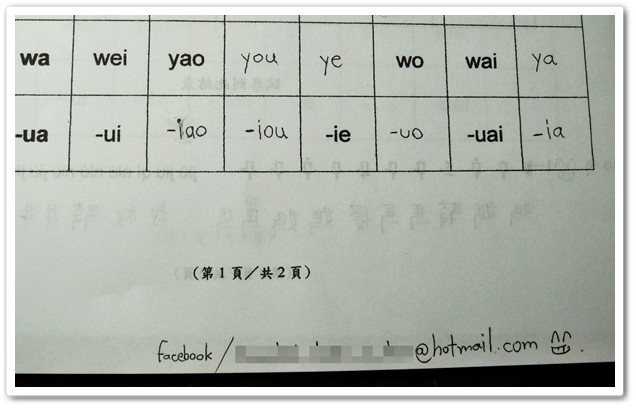 wa wei yao you ye wo wai ya
-ua -ui -iao -iou -ie -uo -uai -ia
(第1頁/共2頁)
facebook / @hotmail.com